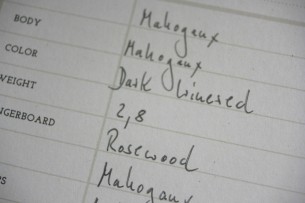 BODY Mahogany
COLOR Mahogany
Dark
WEIGHT 2,8
NGERBOARD Rosewood
Mahogany